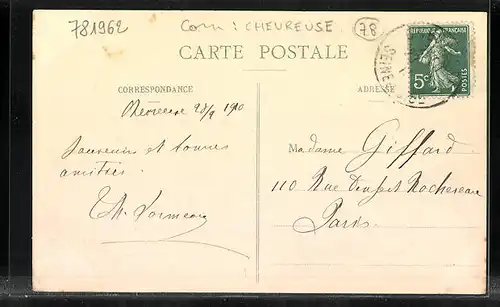 781962
Com : CHEVREUSE
78
CARTE POSTALE
CORRESPONDANCE
ADRESSE
RÉPUBLIQUE FRANÇAISE
5c
POSTES
SEINE
Chevreuse 28/9 1910
Souvenir et bonnes
amitiés.
Th.
Madame Giffard
110 Rue Denfert Rochereau
Paris.